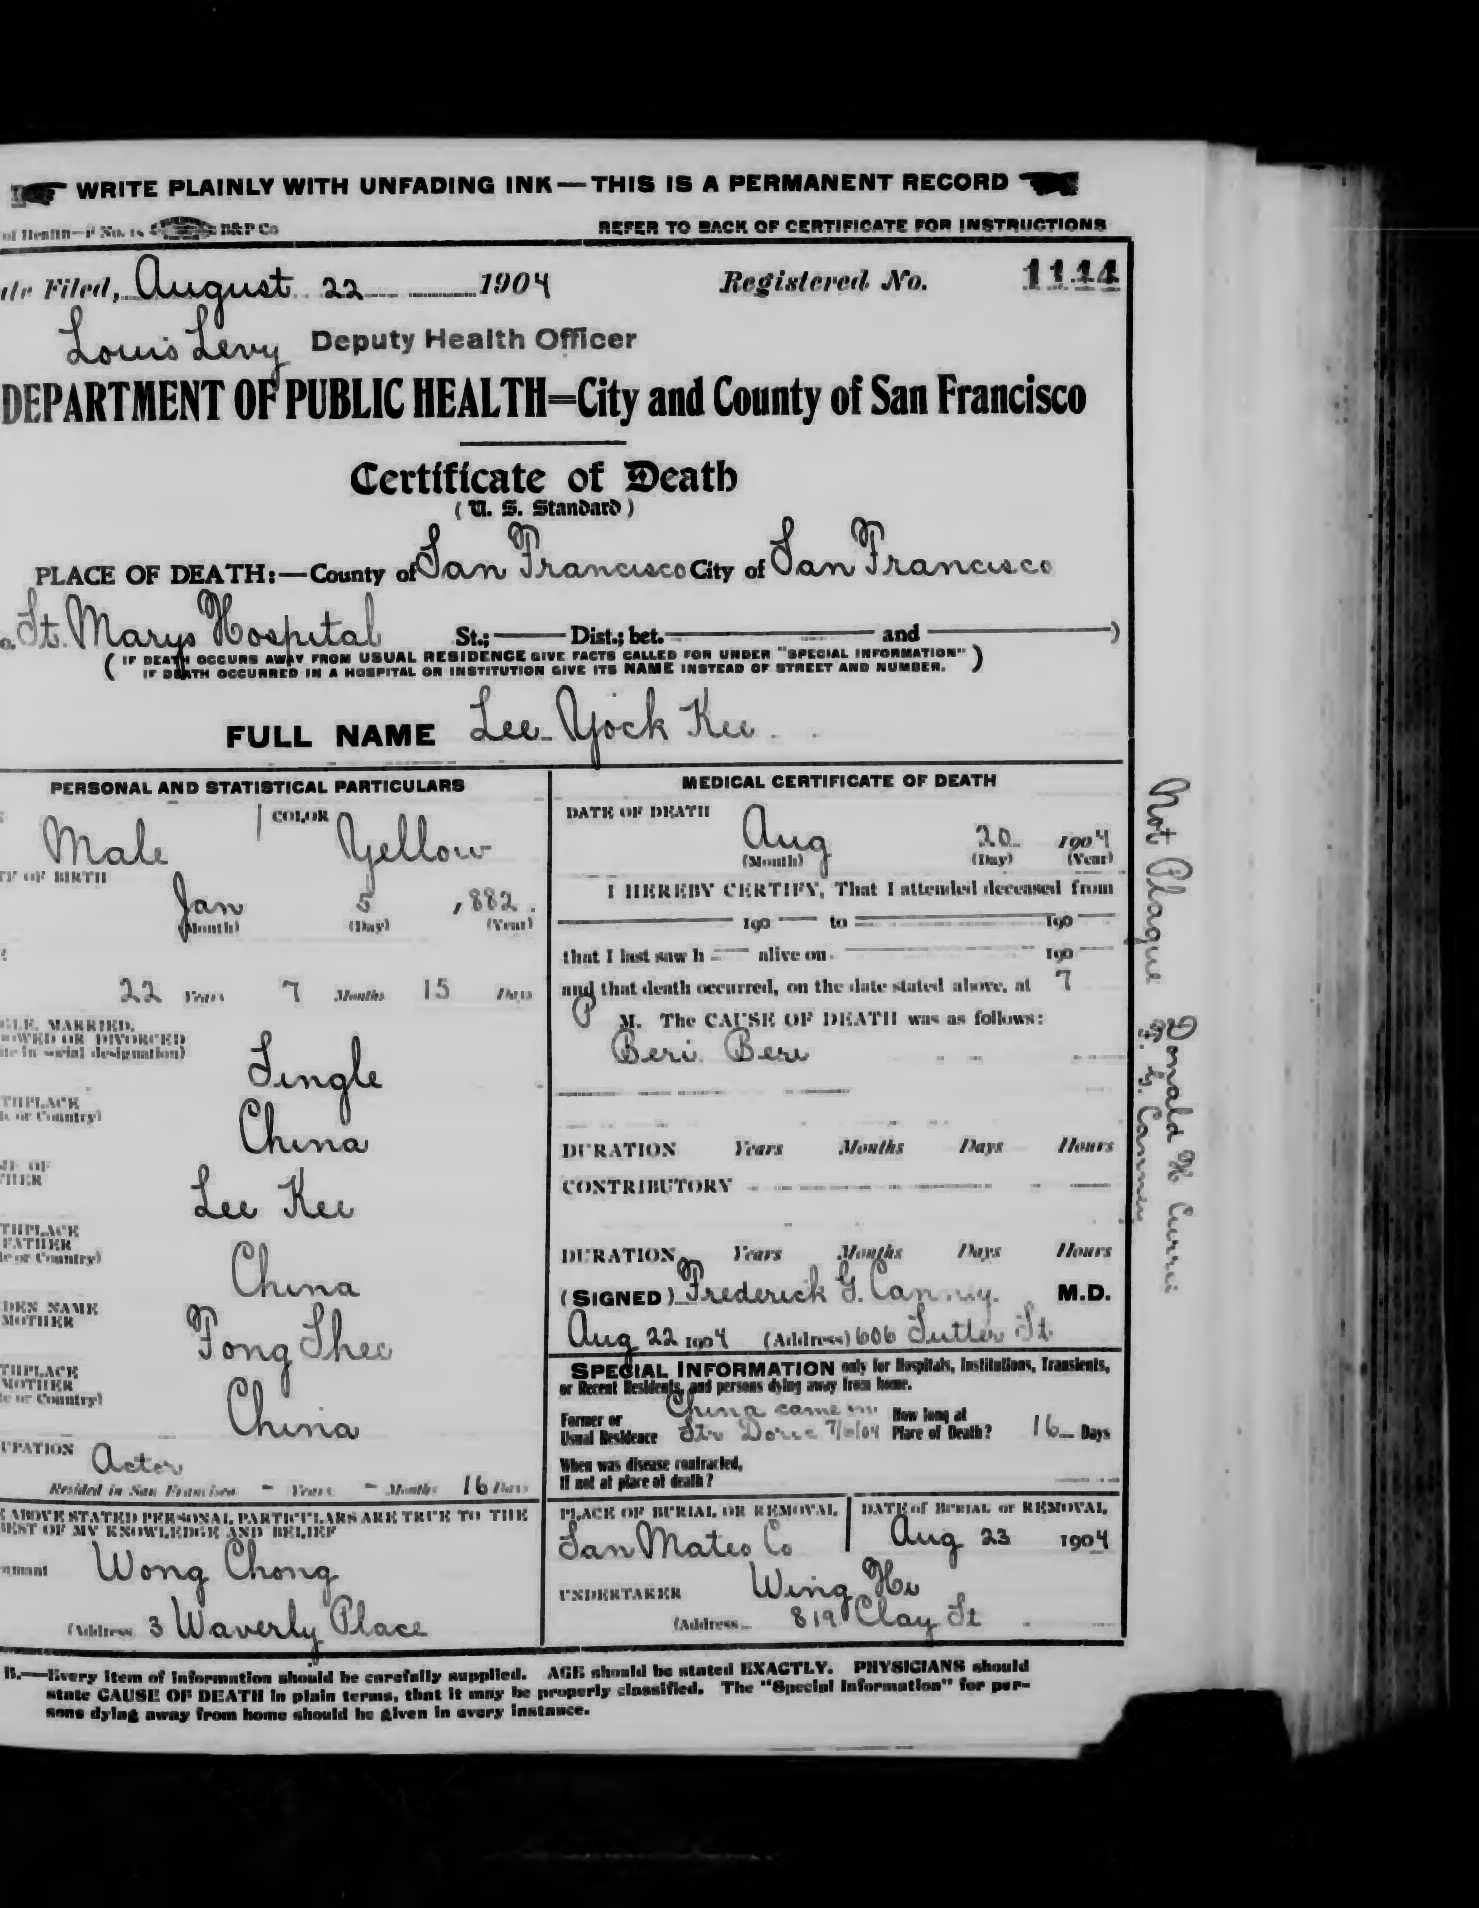 WRITE PLAINLY WITH UNFADING INK—THIS IS A PERMANENT RECORD
of Health—F No. 18 B&P Co REFER TO BACK OF CERTIFICATE FOR INSTRUCTIONS
te Filed, August 22 1904 Registered No. 1144
Louis Levy Deputy Health Officer
DEPARTMENT OF PUBLIC HEALTH=City and County of San Francisco
Certificate of Death
(U. S. Standard)
PLACE OF DEATH:—County of San Francisco City of San Francisco
o. St. Marys Hospital St.; Dist.; bet. and )
( IF DEATH OCCURS AWAY FROM USUAL RESIDENCE GIVE FACTS CALLED FOR UNDER "SPECIAL INFORMATION" )
IF DEATH OCCURRED IN A HOSPITAL OR INSTITUTION GIVE ITS NAME INSTEAD OF STREET AND NUMBER.
FULL NAME Lee Yock Kee
PERSONAL AND STATISTICAL PARTICULARS
COLOR
Male Yellow
TE OF BIRTH
Jan 5 , 882.
(Month) (Day) (Year)
22 Years 7 Months 15 Days
GLE, MARRIED,
OWED OR DIVORCED
te in social designation)
Single
THPLACE
te or Country)
China
ME OF
THER
Lee Kee
THPLACE
FATHER
te or Country)
China
DEN NAME
MOTHER
Fong Shee
THPLACE
MOTHER
te or Country)
China
UPATION Actor
Resided in San Francisco - Years - Months 16 Days
E ABOVE STATED PERSONAL PARTICULARS ARE TRUE TO THE
BEST OF MY KNOWLEDGE AND BELIEF
rmant Wong Chong
(Address 3 Waverly Place
MEDICAL CERTIFICATE OF DEATH
DATE OF DEATH
Aug 20 1904
(Month) (Day) (Year)
I HEREBY CERTIFY, That I attended deceased from
190 to 190
that I last saw h alive on 190
and that death occurred, on the date stated above, at 7
P M. The CAUSE OF DEATH was as follows:
Beri Beri
DURATION Years Months Days Hours
CONTRIBUTORY
DURATION Years Months Days Hours
(SIGNED) Frederick G. Canney. M.D.
Aug 22 1904 (Address) 606 Sutter St
SPECIAL INFORMATION only for Hospitals, Institutions, Transients,
or Recent Residents, and persons dying away from home.
Former or
Usual Residence
China came in
Str Doric
How long at
Place of Death? 16 Days
When was disease contracted,
If not at place of death?
PLACE OF BURIAL OR REMOVAL
San Mateo Co
DATE of BURIAL or REMOVAL
Aug 23 1904
UNDERTAKER Wing Hi
(Address 819 Clay St
B.—Every item of information should be carefully supplied. AGE should be stated EXACTLY. PHYSICIANS should
state CAUSE OF DEATH in plain terms, that it may be properly classified. The "Special Information" for per-
sons dying away from home should be given in every instance.
Not Plague
Donald H Currie
F. G. Canney